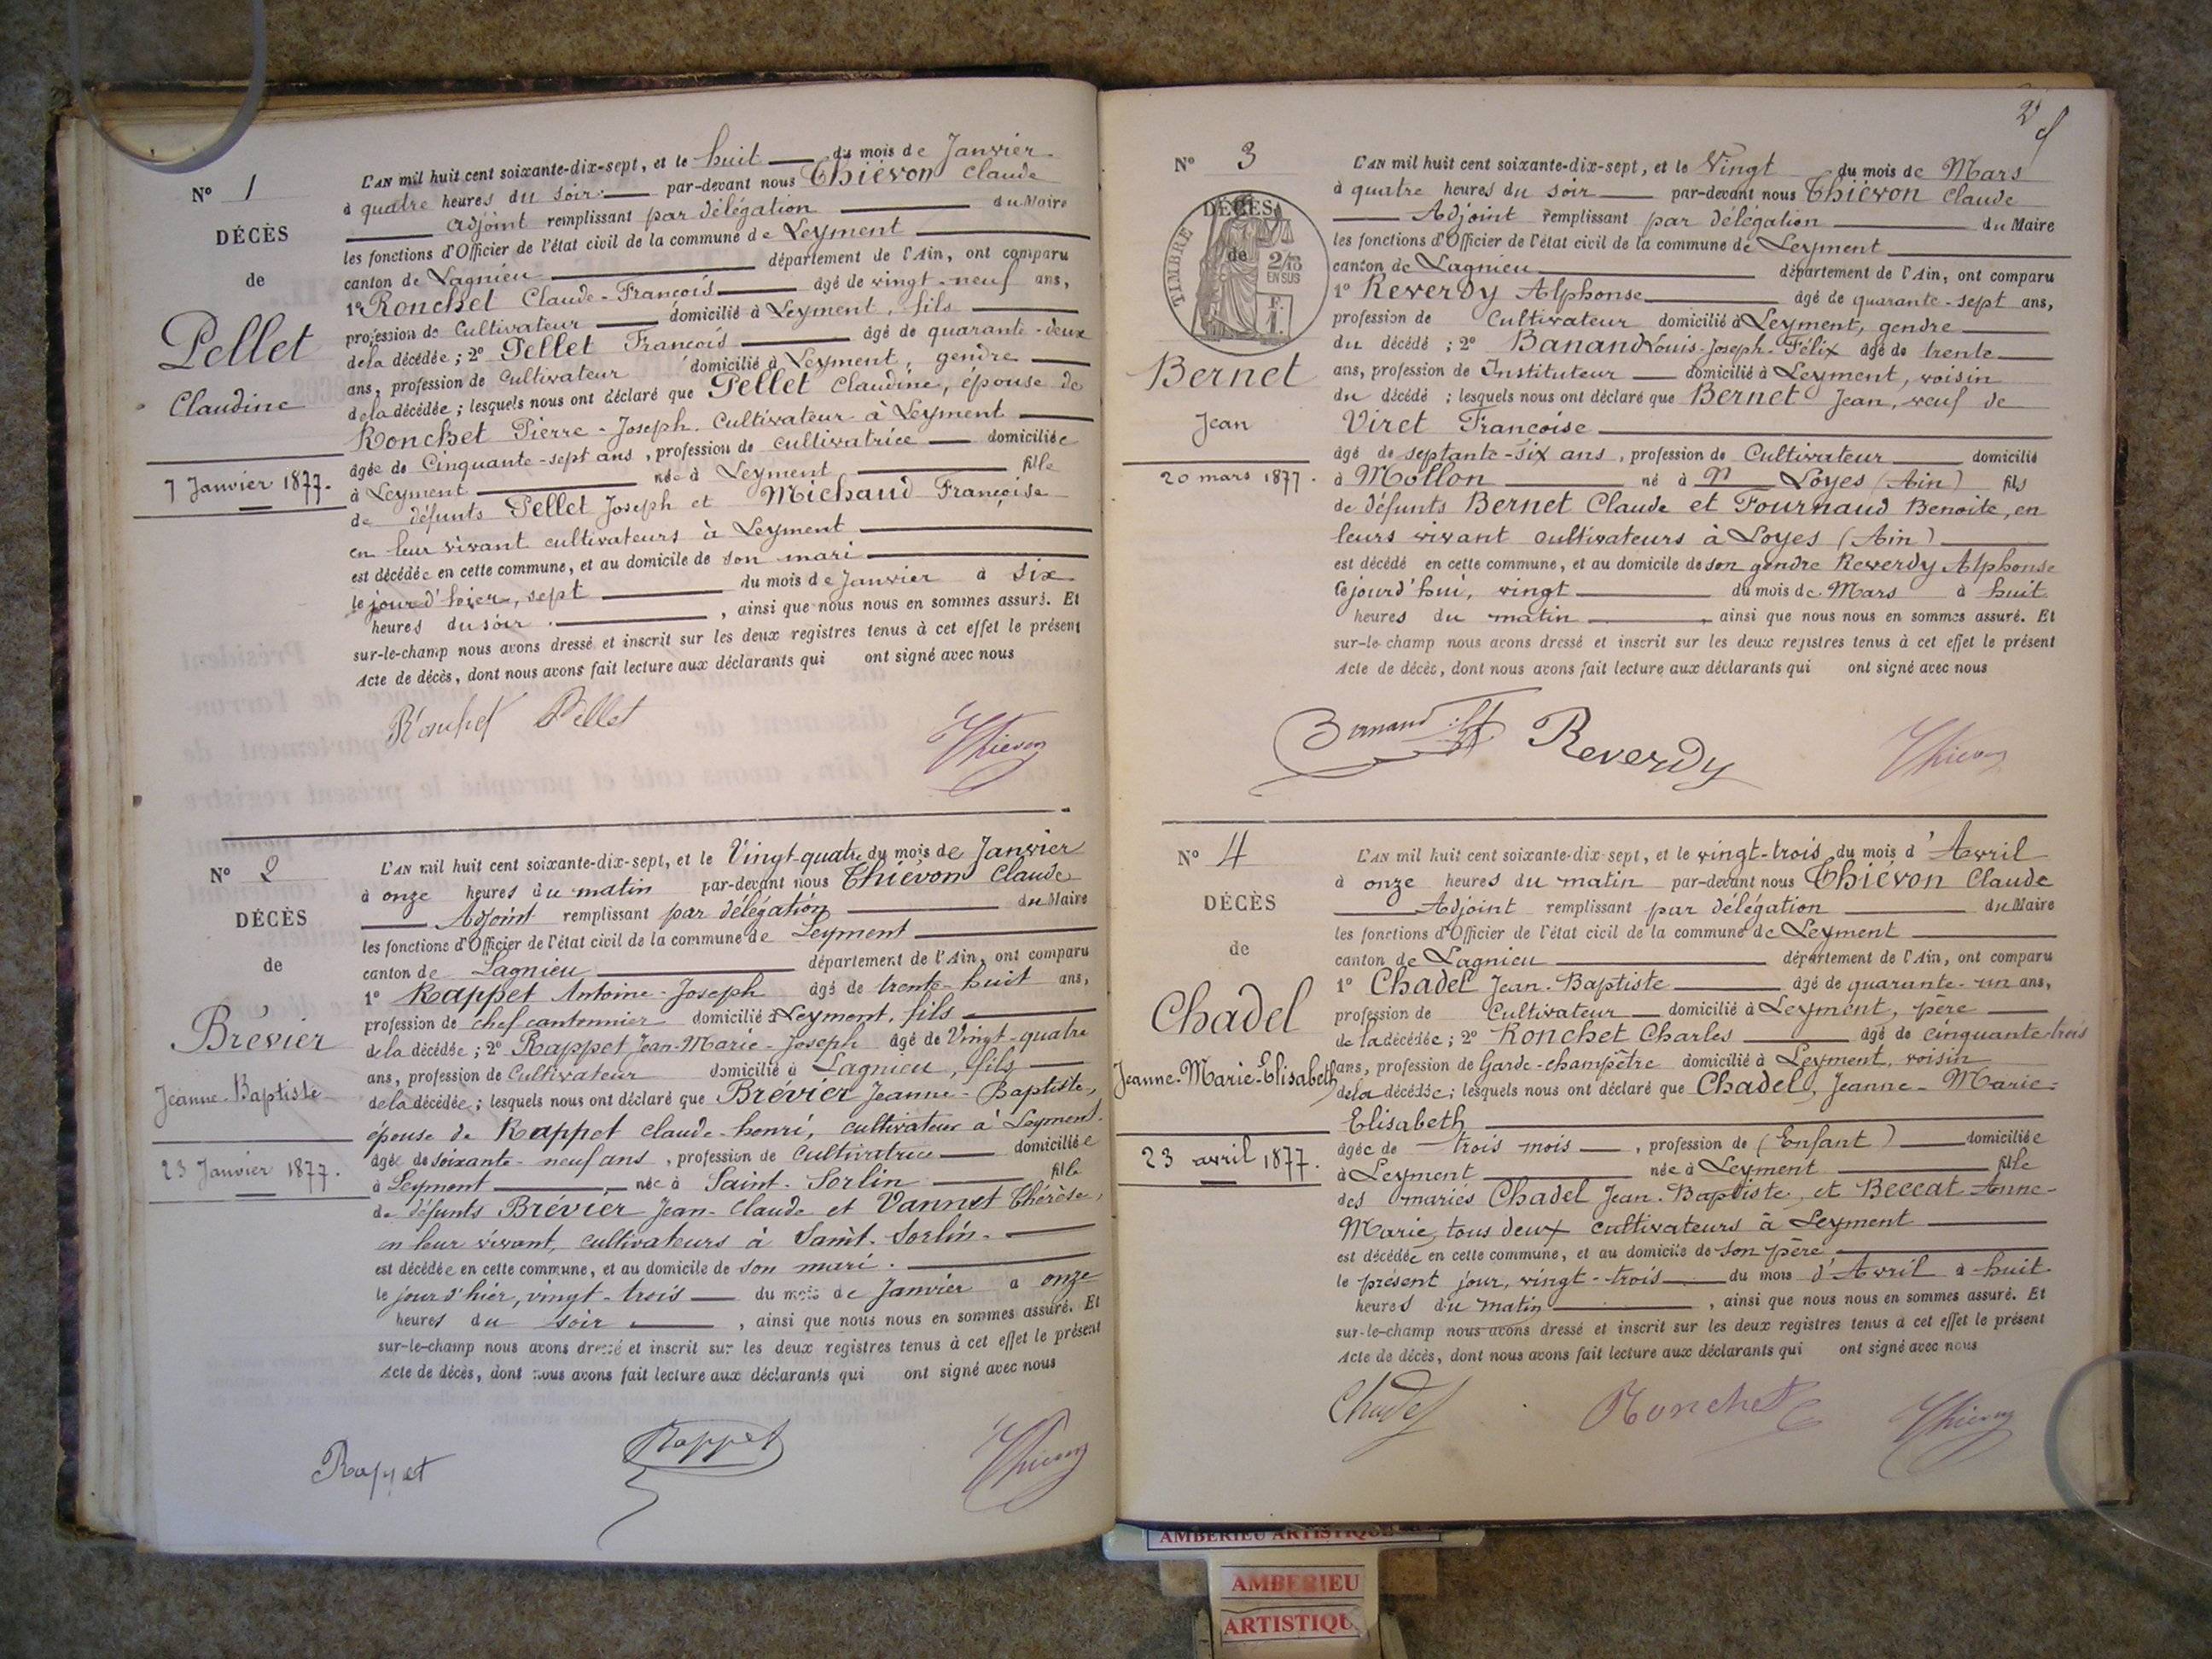 N° 1
DÉCÈS
de
Pellet
Claudine
7 Janvier 1877.
L'AN mil huit cent soixante-dix-sept, et le huit du mois de Janvier
à quatre heures du soir par-devant nous Thiévon Claude
adjoint remplissant par délégation du Maire
les fonctions d'Officier de l'état civil de la commune de Leyment
canton de Lagnieu département de l'Ain, ont comparu
1° Ronchet Claude-François âgé de vingt-neuf ans,
profession de Cultivateur domicilié à Leyment, fils
de la décédée ; 2° Pellet François âgé de quarante-deux
ans, profession de Cultivateur domicilié à Leyment, gendre
de la décédée ; lesquels nous ont déclaré que Pellet Claudine, épouse de
Ronchet Pierre-Joseph. Cultivateur à Leyment
âgée de Cinquante-sept ans, profession de cultivatrice domiciliée
à Leyment née à Leyment fille
de défunts Pellet Joseph et Michaud Françoise
en leur vivant cultivateurs à Leyment
est décédée en cette commune, et au domicile de son mari
le jour d'hier, sept du mois de Janvier à six
heures du soir, ainsi que nous nous en sommes assuré. Et
sur-le-champ nous avons dressé et inscrit sur les deux registres tenus à cet effet le présent
Acte de décès, dont nous avons fait lecture aux déclarants qui ont signé avec nous
Ronchet Pellet Thievon
N° 2
DÉCÈS
de
Brévier
Jeanne-Baptiste
23 Janvier 1877.
L'AN mil huit cent soixante-dix-sept, et le Vingt-quatre du mois de Janvier
à onze heures du matin par-devant nous Thiévon Claude
Adjoint remplissant par délégation du Maire
les fonctions d'Officier de l'état civil de la commune de Leyment
canton de Lagnieu département de l'Ain, ont comparu
1° Rappet Antoine-Joseph âgé de trente-huit ans,
profession de chef cantonnier domicilié à Leyment, fils
de la décédée ; 2° Rappet Jean-Marie-Joseph âgé de Vingt-quatre
ans, profession de Cultivateur domicilié à Lagnieu, fils
de la décédée ; lesquels nous ont déclaré que Brévier Jeanne-Baptiste,
épouse de Rappet Claude-henri, cultivateur à Leyment.
âgée de soixante-neuf ans, profession de Cultivatrice domiciliée
à Leyment née à Saint-Sorlin fille
de défunts Brévier Jean-Claude et Vannet Thérèse,
en leur vivant, cultivateurs à Saint-Sorlin.
est décédée en cette commune, et au domicile de son mari.
le jour d'hier, vingt-trois du mois de Janvier à onze
heures du soir, ainsi que nous nous en sommes assuré. Et
sur-le-champ nous avons dressé et inscrit sur les deux registres tenus à cet effet le présent
Acte de décès, dont nous avons fait lecture aux déclarants qui ont signé avec nous
Rappet Rappet Thievon
2
N° 3
DÉCÈS
de
TIMBRE
2/10
EN SUS
Bernet
Jean
20 mars 1877.
L'AN mil huit cent soixante-dix-sept, et le Vingt du mois de Mars
à quatre heures du soir par-devant nous Thiévon Claude
Adjoint remplissant par délégation du Maire
les fonctions d'Officier de l'état civil de la commune de Leyment
canton de Lagnieu département de l'Ain, ont comparu
1° Reverdy Alphonse âgé de quarante-sept ans,
profession de Cultivateur domicilié à Leyment, gendre
du décédé ; 2° Banand Louis-Joseph-Félix âgé de trente
ans, profession de Instituteur domicilié à Leyment, voisin
du décédé ; lesquels nous ont déclaré que Bernet Jean, veuf de
Viret Françoise
âgé de septante-six ans, profession de Cultivateur domicilié
à Mollon né à Loyes (Ain) fils
de défunts Bernet Claude et Fournaud Benoite, en
leurs vivant cultivateurs à Loyes (Ain)
est décédé en cette commune, et au domicile de son gendre Reverdy Alphonse
cejourd'hui, vingt du mois de Mars à huit
heures du matin, ainsi que nous nous en sommes assuré. Et
sur-le-champ nous avons dressé et inscrit sur les deux registres tenus à cet effet le présent
Acte de décès, dont nous avons fait lecture aux déclarants qui ont signé avec nous
Reverdy Thievon
N° 4
DÉCÈS
de
Chadel
Jeanne-Marie-Elisabeth
23 avril 1877.
L'AN mil huit cent soixante-dix-sept, et le vingt-trois du mois d'Avril
à onze heures du matin par-devant nous Thiévon Claude
Adjoint remplissant par délégation du Maire
les fonctions d'Officier de l'état civil de la commune de Leyment
canton de Lagnieu département de l'Ain, ont comparu
1° Chadel Jean-Baptiste âgé de quarante-un ans,
profession de Cultivateur domicilié à Leyment, père
de la décédée ; 2° Ronchet Charles âgé de cinquante-trois
ans, profession de Garde-champêtre domicilié à Leyment, voisin
de la décédée ; lesquels nous ont déclaré que Chadel, Jeanne-Marie-
Elisabeth
âgée de trois mois, profession de (Enfant) domiciliée
à Leyment née à Leyment fille
des mariés Chadel Jean-Baptiste, et Beccat Anne-
Marie, tous deux cultivateurs à Leyment
est décédée en cette commune, et au domicile de son père
le présent jour, vingt-trois du mois d'Avril à huit
heures du matin, ainsi que nous nous en sommes assuré. Et
sur-le-champ nous avons dressé et inscrit sur les deux registres tenus à cet effet le présent
Acte de décès, dont nous avons fait lecture aux déclarants qui ont signé avec nous
Chadel Ronchet Thievon
AMBERIEU ARTISTIQUE
AMBERIEU
ARTISTIQU